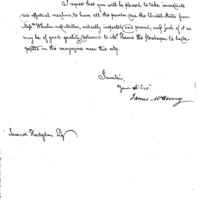 I request that you will be pleased to take immediate
and effectual measures, to have all the powder for the United States from
critically inspected and proved, and such of it as
may be of good quality delivered to Mr. Harris the
in the magazine near this city.
I am Sir,
Your Obt Servt
James McHenry
Samuel Hodgdon Esq